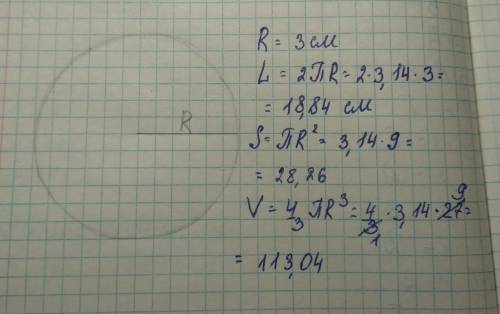 R = 3 см
L = 2ПR = 2·3,14·3=
= 18,84 см
R
S= ПR² = 3,14·9 =
= 28,26
V = 4/3 ПR³ = 4/3 1 ·3,14·27 9 =
= 113,04